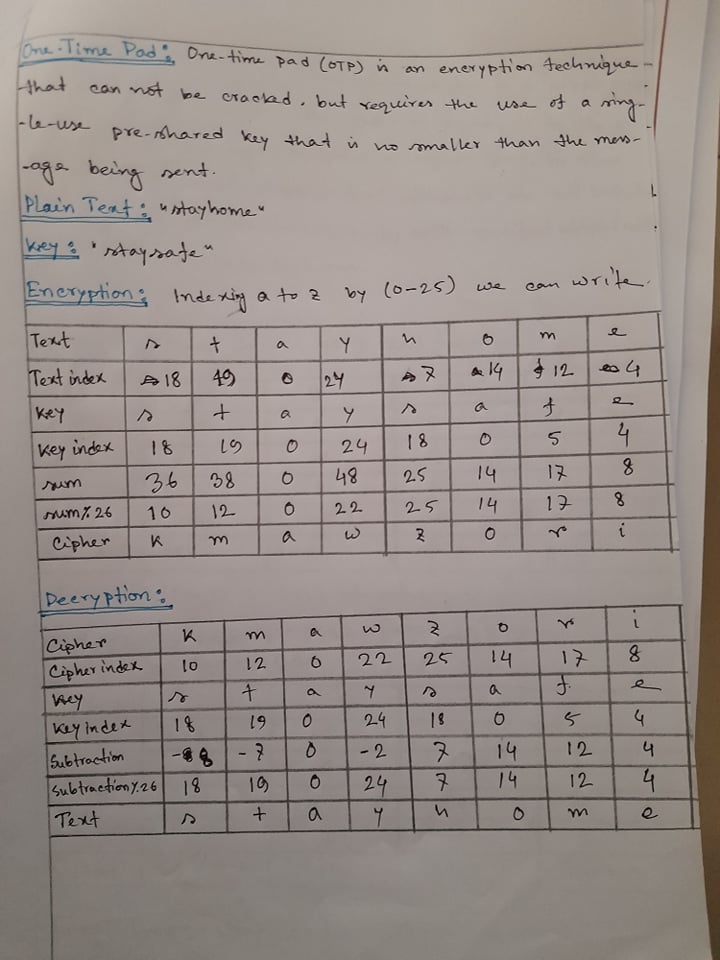 One-Time Pad: One-time pad (OTP) is an encryption technique
that can not be cracked, but requires the use of a sing-
-le-use pre-shared key that is no smaller than the mess-
-age being sent.
Plain Text: "stayhome"
Key: "staysafe"
Encryption: Indexing a to z by (0-25) we can write.
Text s t a y h o m e
Text index 18 19 0 24 7 14 12 4
Key s t a y s a f e
Key index 18 19 0 24 18 0 5 4
sum 36 38 0 48 25 14 17 8
sum%26 10 12 0 22 25 14 17 8
Cipher k m a w z o r i
Decryption:
Cipher k m a w z o r i
Cipher index 10 12 0 22 25 14 17 8
Key s t a y s a f e
Key index 18 19 0 24 18 0 5 4
Subtraction -8 -7 0 -2 7 14 12 4
Subtraction%26 18 19 0 24 7 14 12 4
Text s t a y h o m e